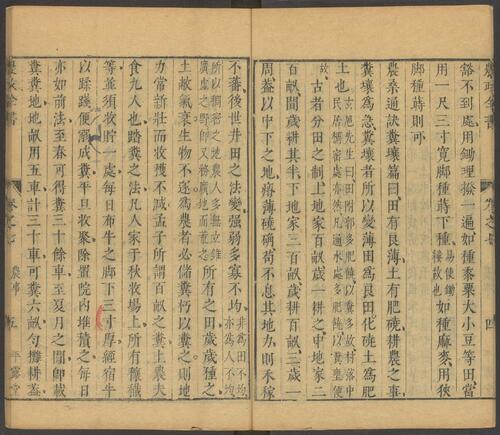 豁不到處用鋤理撥一遍如種黍粟大小豆等田當
用一尺三寸寬脚種蒔下種易使鋤穫故也如種麻麥用狹
脚種蒔則可
農桑通訣糞壤篇曰田有良薄土有肥磽耕農之事
糞壤爲急糞壤者所以變薄田爲良田化磽土爲肥
土也
故古者分田之制上地家百畝歲一耕之中地家二
百畝間歲耕其半下地家三百畝歲耕百畝三歲一
周蓋以中下之地瘠薄磽确苟不息其地力則禾稼
不蕃後世井田之法變强弱多寡不均非為田不均亦為人不均
所有之田歲歲種之
土敝氣衰生物不遂爲農者必儲糞朽以糞之則地
力常新壯而收穫不減孟子所謂百畝之糞上農夫
食九人也踏糞之法凡人家于秋收塲上所有穰䅖
等並須收貯一處每日布牛之脚下三寸厚經宿牛
以蹂踐便溺成糞平旦收聚除置院內堆積之每日
亦如前法至春可得糞三十餘車至夏月之間卽載
糞糞地地畝用五車計三十車可糞六畝勻攤耕蓋
農政全書
卷之七
農事
平露堂